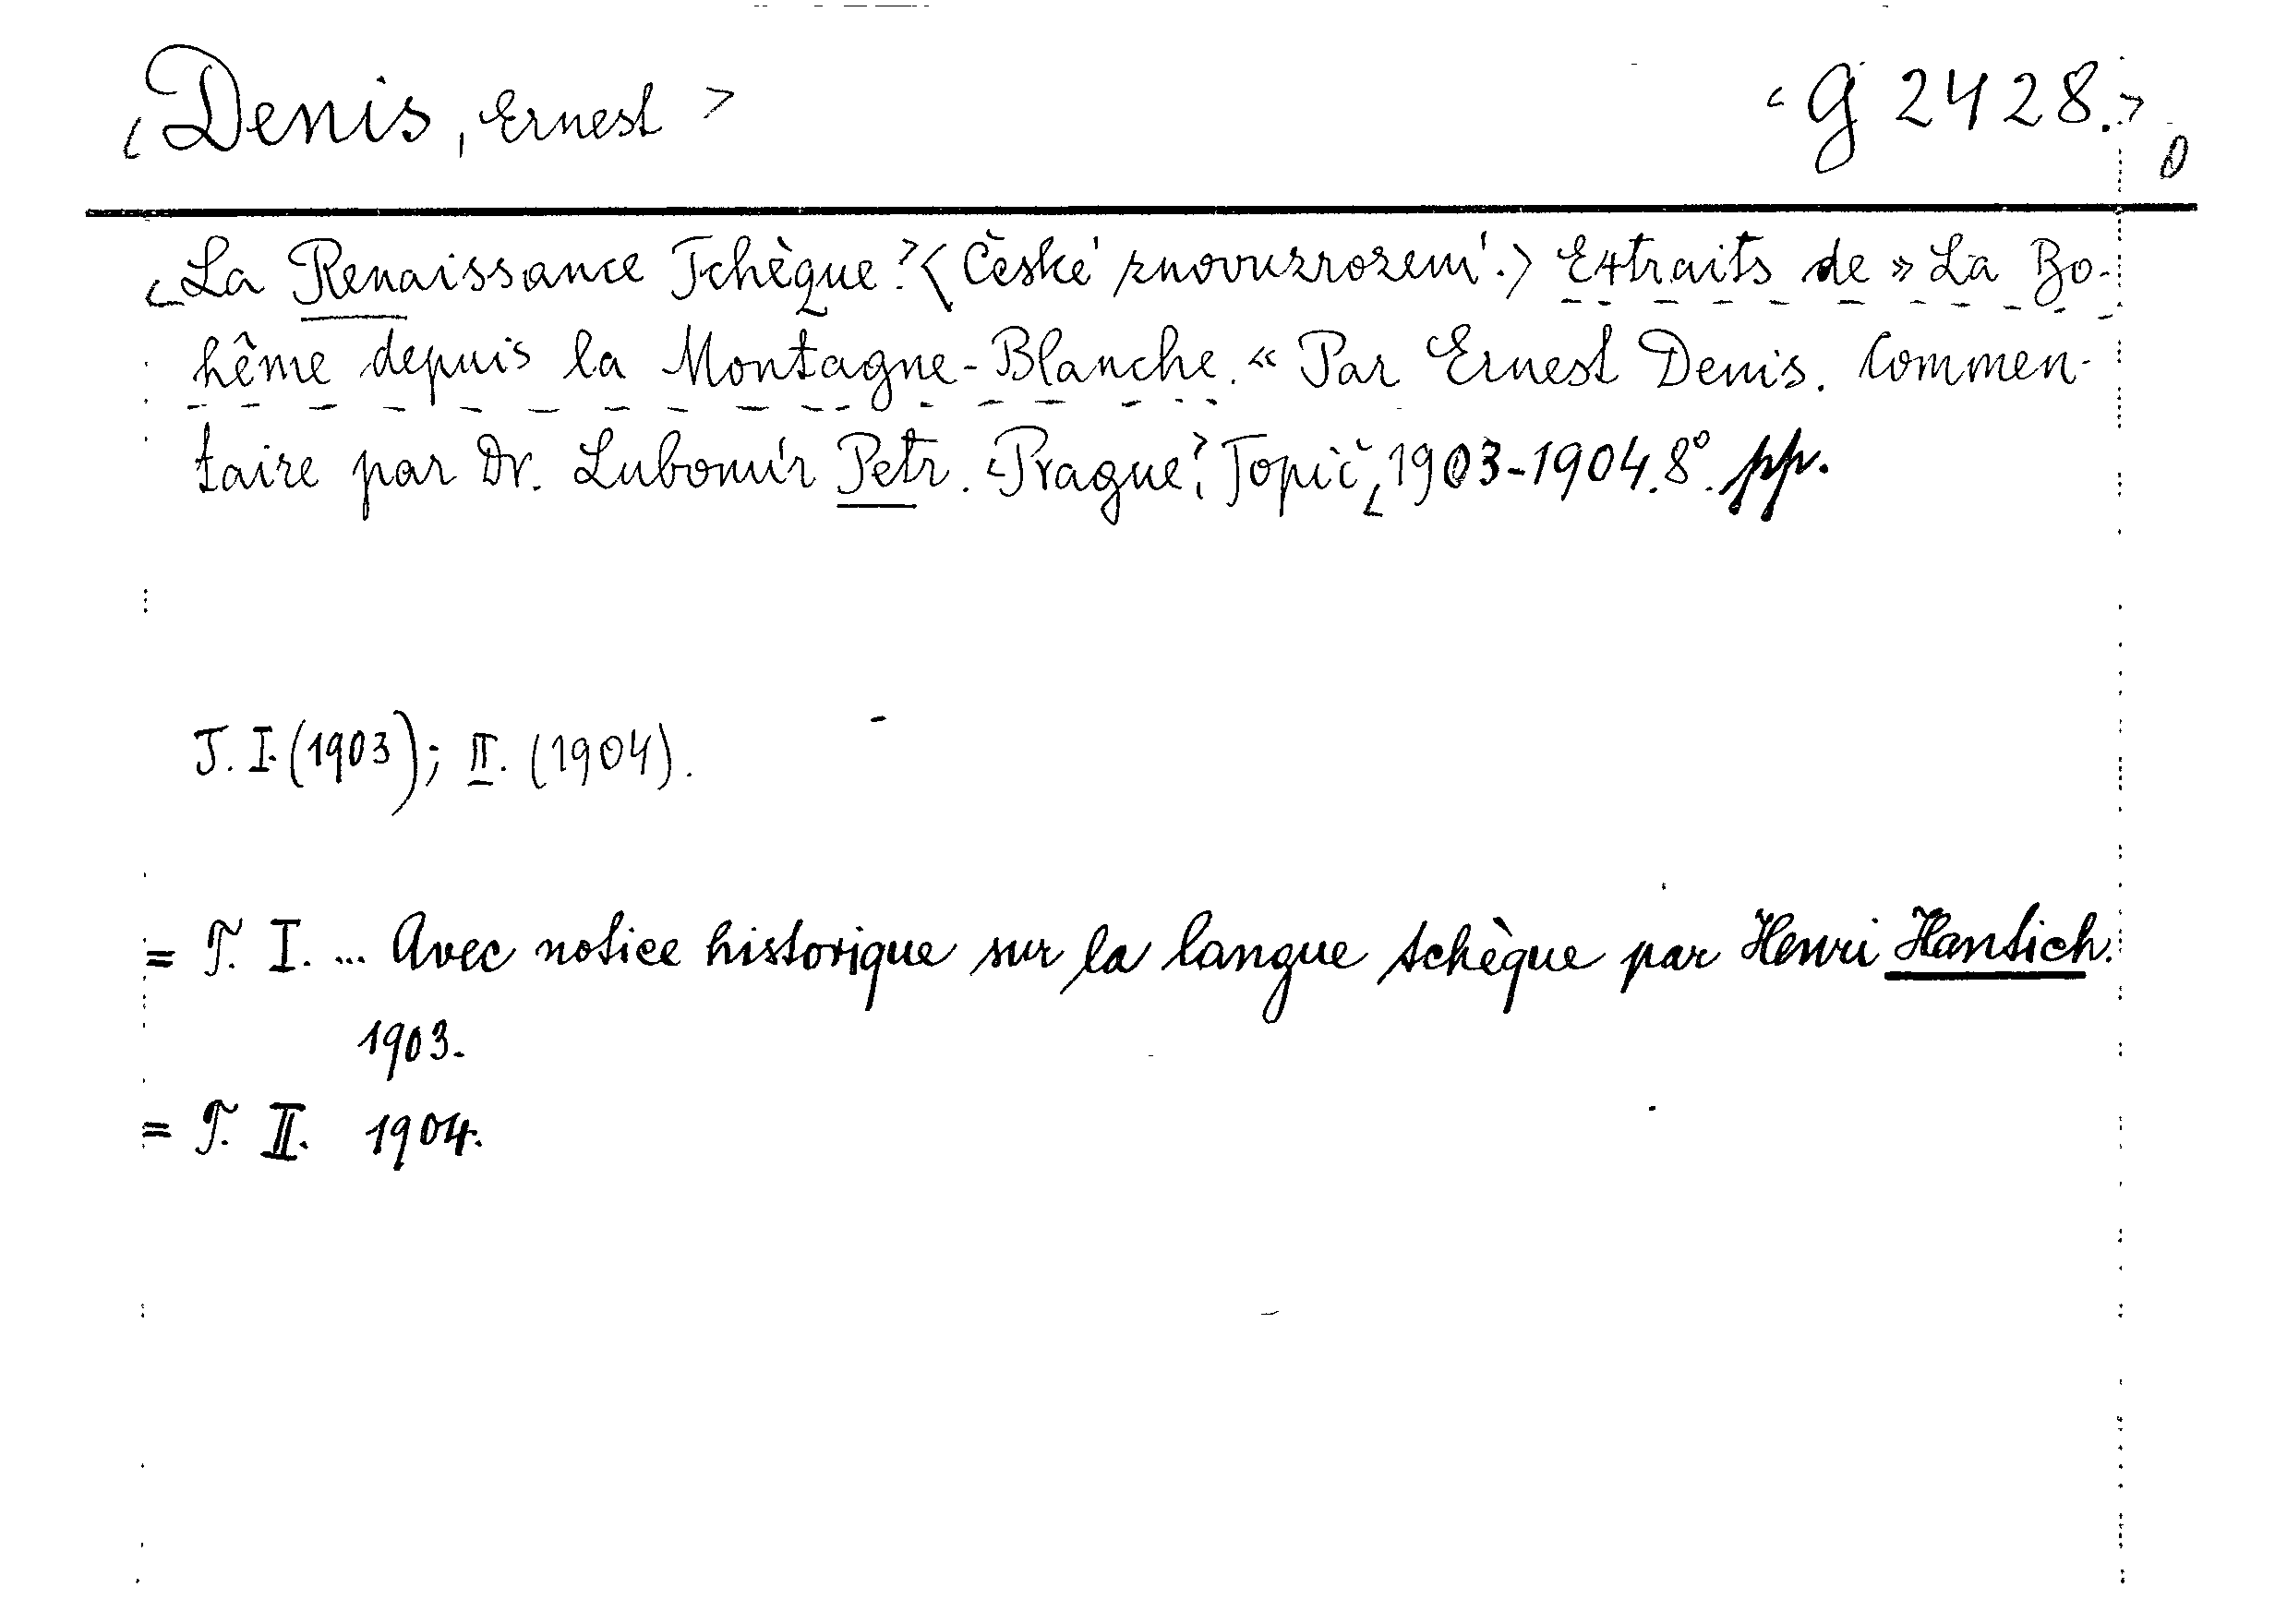 Denis, Ernest G 2428. 0
La Renaissance Tchèque. (České znovuzrození.) Extraits de » La Bo-
hême depuis la Montagne-Blanche. « Par Ernest Denis. Commen-
taire par Dr. Lubomír Petr. Prague, Topič, 1903-1904. 8°. pp.
T. I. (1903); II. (1904).
= T. I. ... Avec notice historique sur la langue tchèque par Henri Hantich.
1903.
= T. II. 1904.